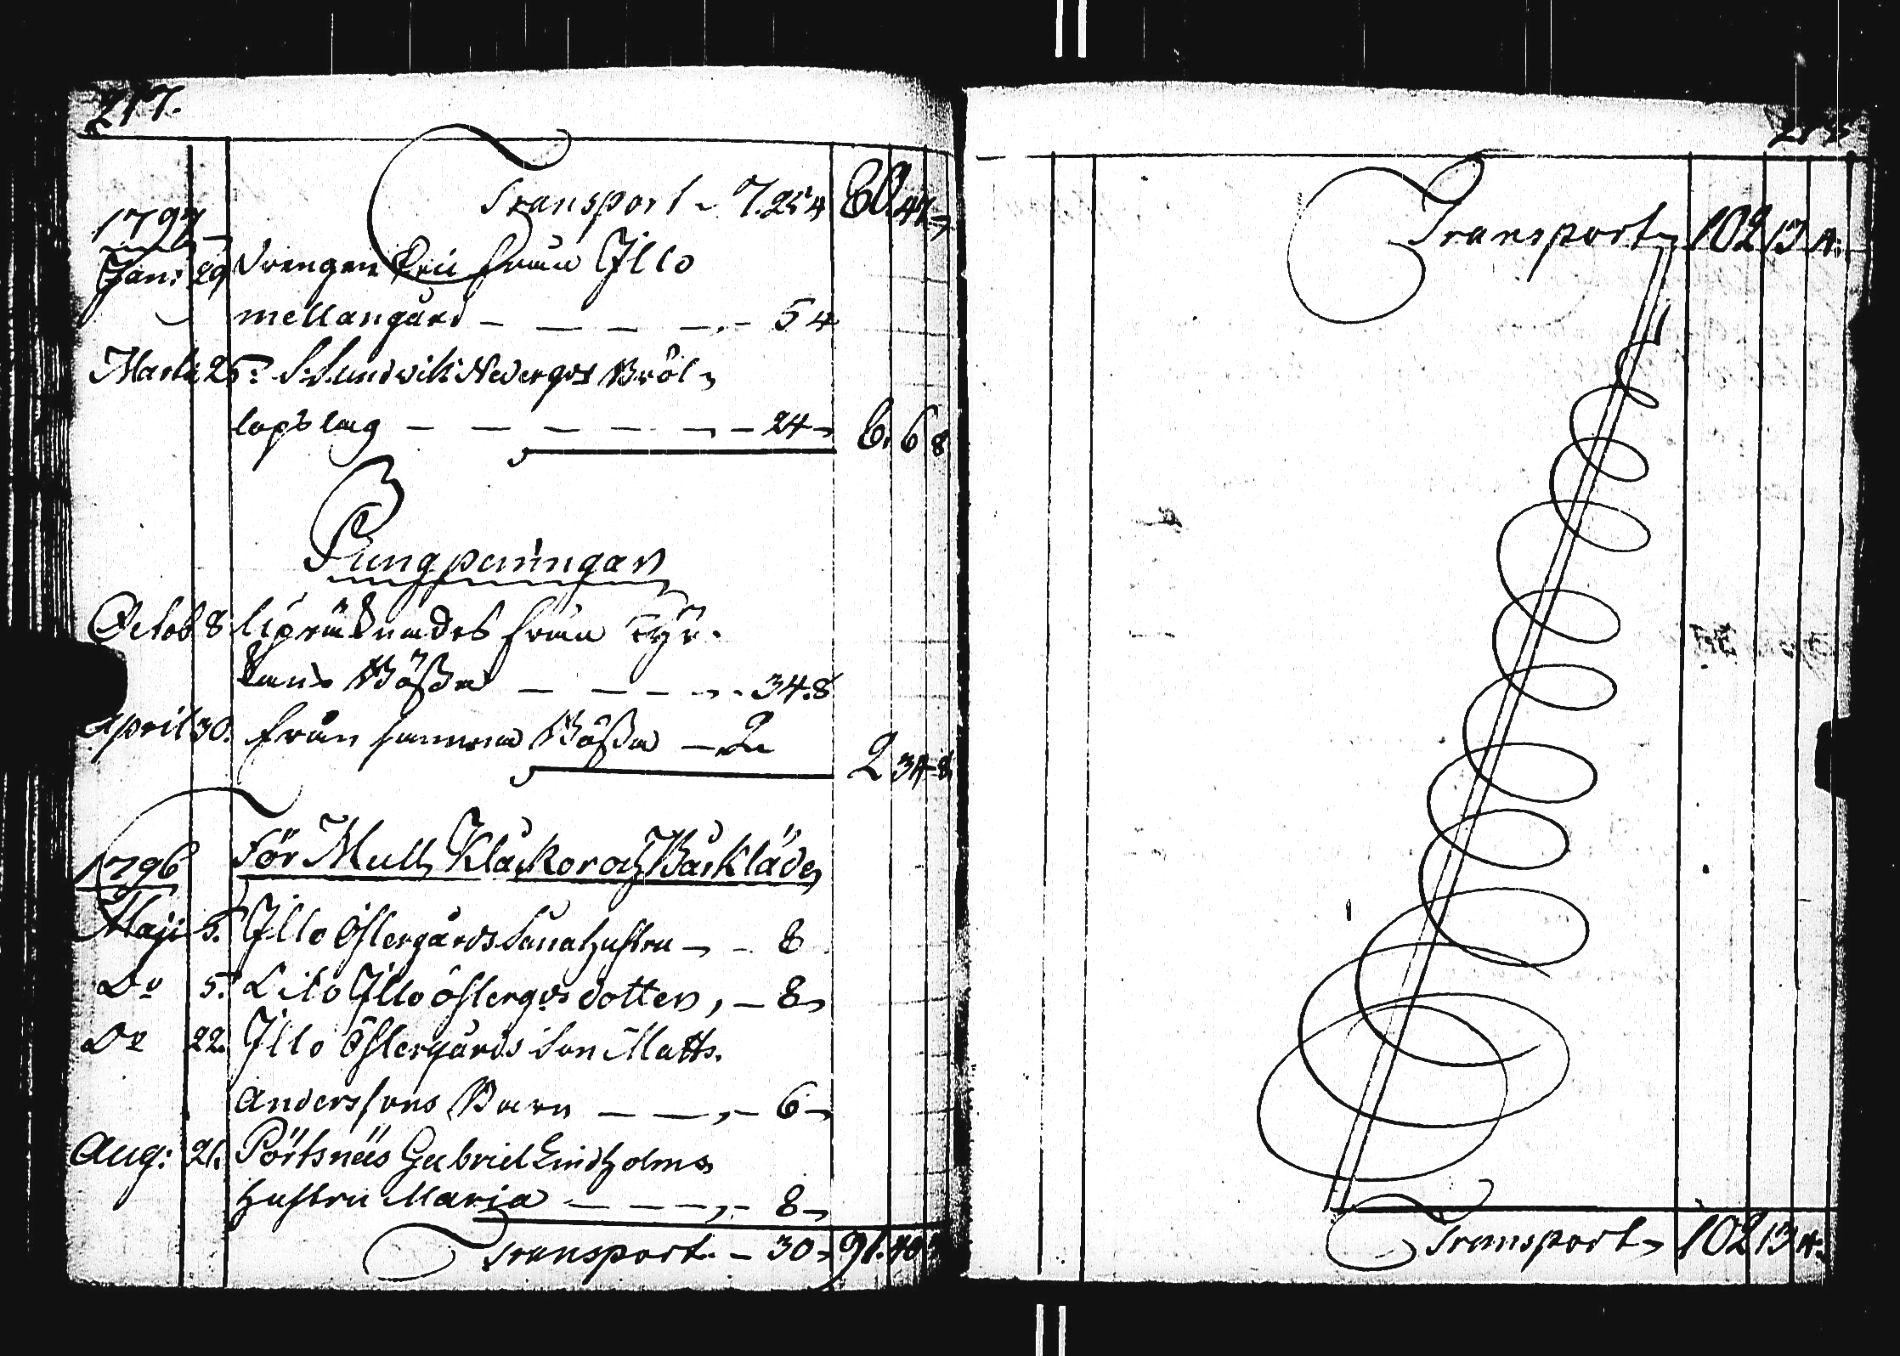 217.
Transport - 7.25 4 80.47.
1797
Jan: 29 Drengen Eric från Illo
mellangård - - - - 5 4
Martii 25. S. Sundvik Nedergds Bröl-
lopslag - - - - - 24 8. 6 8
Pungpenningar
Octob 8 upräknades från Kyr-
kans Bössa - - - - 34.8
April 30. från samma Bössa - 2 2 34 8
1796 För Mull, Kläckor och Bårkläde
Maji 5. Illo Östergårds Sonahustru - - 8
Do 5. Lilo Illo Östergds dotter, - 8
Do 22. Illo Östergårds Son Matts
Anderssons Barn - - - 6
Aug: 21. Pörtsnäs Gabriel Lindholms
hustru Maria - - - - 8
Transport. - 30 91.40
Transport 102 13 4.
Transport 102 13 4.